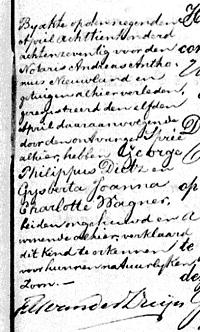 By akte op den negenden
April achttienhonderd
achtenzeventig voor den
Notaris Andreas Antho
nius Nieuwland en
getuigen alhier verleden,
geregistreerd den elfden
April daaraanvolgende
door den ontvanger
alhier, hebben George
Philippus Dietz en
Gysberta Joanna
Charlotte Wagner,
beiden ongehuwd en
wonende alhier, verklaard
dit kind te erkennen
voor hunnen natuurlyken
Zoon.